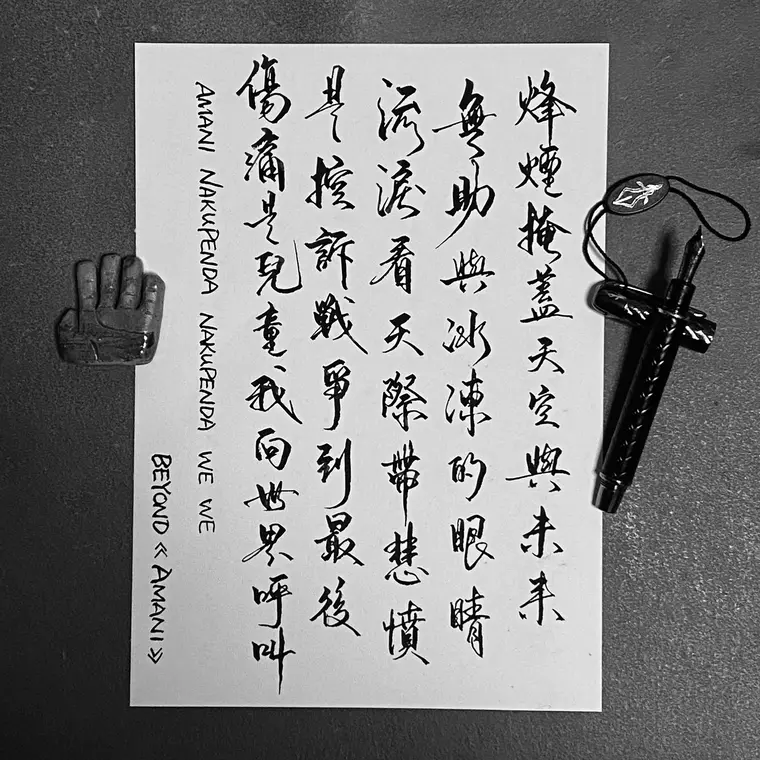 烽煙掩蓋天空與未來
無助與冰凍的眼睛
流淚看天際帶悲憤
是控訴戰爭到最後
傷痛是兒童我向世界呼叫
AMANI NAKUPENDA NAKUPENDA WE WE
BEYOND 《AMANI》